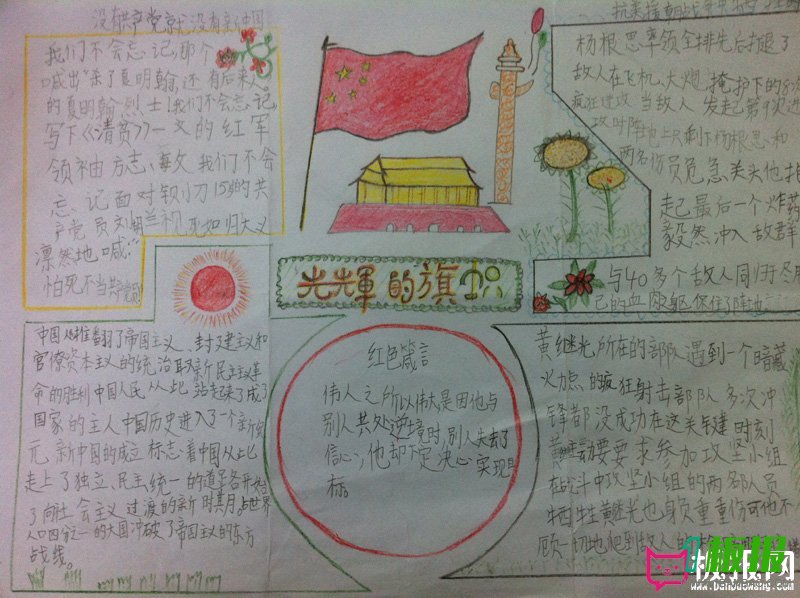 没有共产党就没有新中国
我们不会忘记,那个
喊出"杀了夏明翰,还有后来人"
的夏明翰烈士!我们不会忘记
写下《清贫》一文的红军
领袖方志敏文我们不会
忘记面对铡刀15岁的共
产党员刘胡兰视死如归大义
凛然地喊:"
怕死不当共产党员
光辉的旗帜
抗美援朝战争中
杨根思率领全排先后打退了
敌人在飞机、大炮掩护下的8次
疯狂进攻 当敌人发起第9次进
攻时阵地上只剩下杨根思和
两名伤员危急关头他抱
起最后一个炸药
毅然冲入敌群
与40多个敌人同归于尽用
己的血肉躯保住了阵地
中国人民推翻了帝国主义、封建主义和
官僚资本主义的统治取新民主主义革
命的胜利中国人民从此站起来了成了
国家的主人中国历史进入了一个新纪
元新中国的成立标志着中国从此
走上了独立、民主、统一的道路开始
了向社会主义过渡的新时期占世界
人口四分一的大国冲破了帝国主义的东方
战线。
红色箴言
伟人之所以伟大是因他与
别人共处逆境时,别人失去了
信心,他却下定决心实现目
标。
黄继光所在的部队遇到一个暗藏
火力点的疯狂射击部队多次冲
锋都没成功在这关键时刻
黄继光要求参加攻坚小组
在战斗中攻坚小组的两名队员
牺牲黄继光也身负重重伤可他不
顾一切地爬到敌人的
板报
板报网
www.banbaowang.com